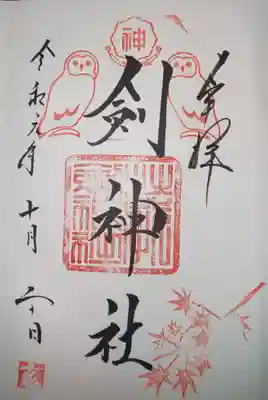 奉拝
神
剣神社
令和元年
十月
二十日